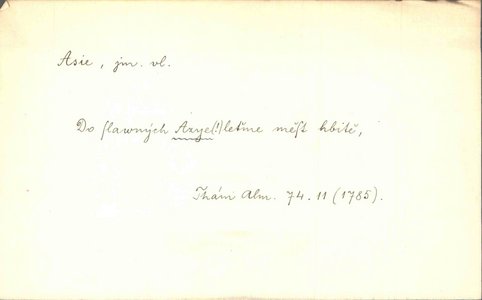 Asie, jm. vl.
Do ſlawných Azye(!) leťme měſt hbitě,
Thám Alm. 74. 11 (1785).